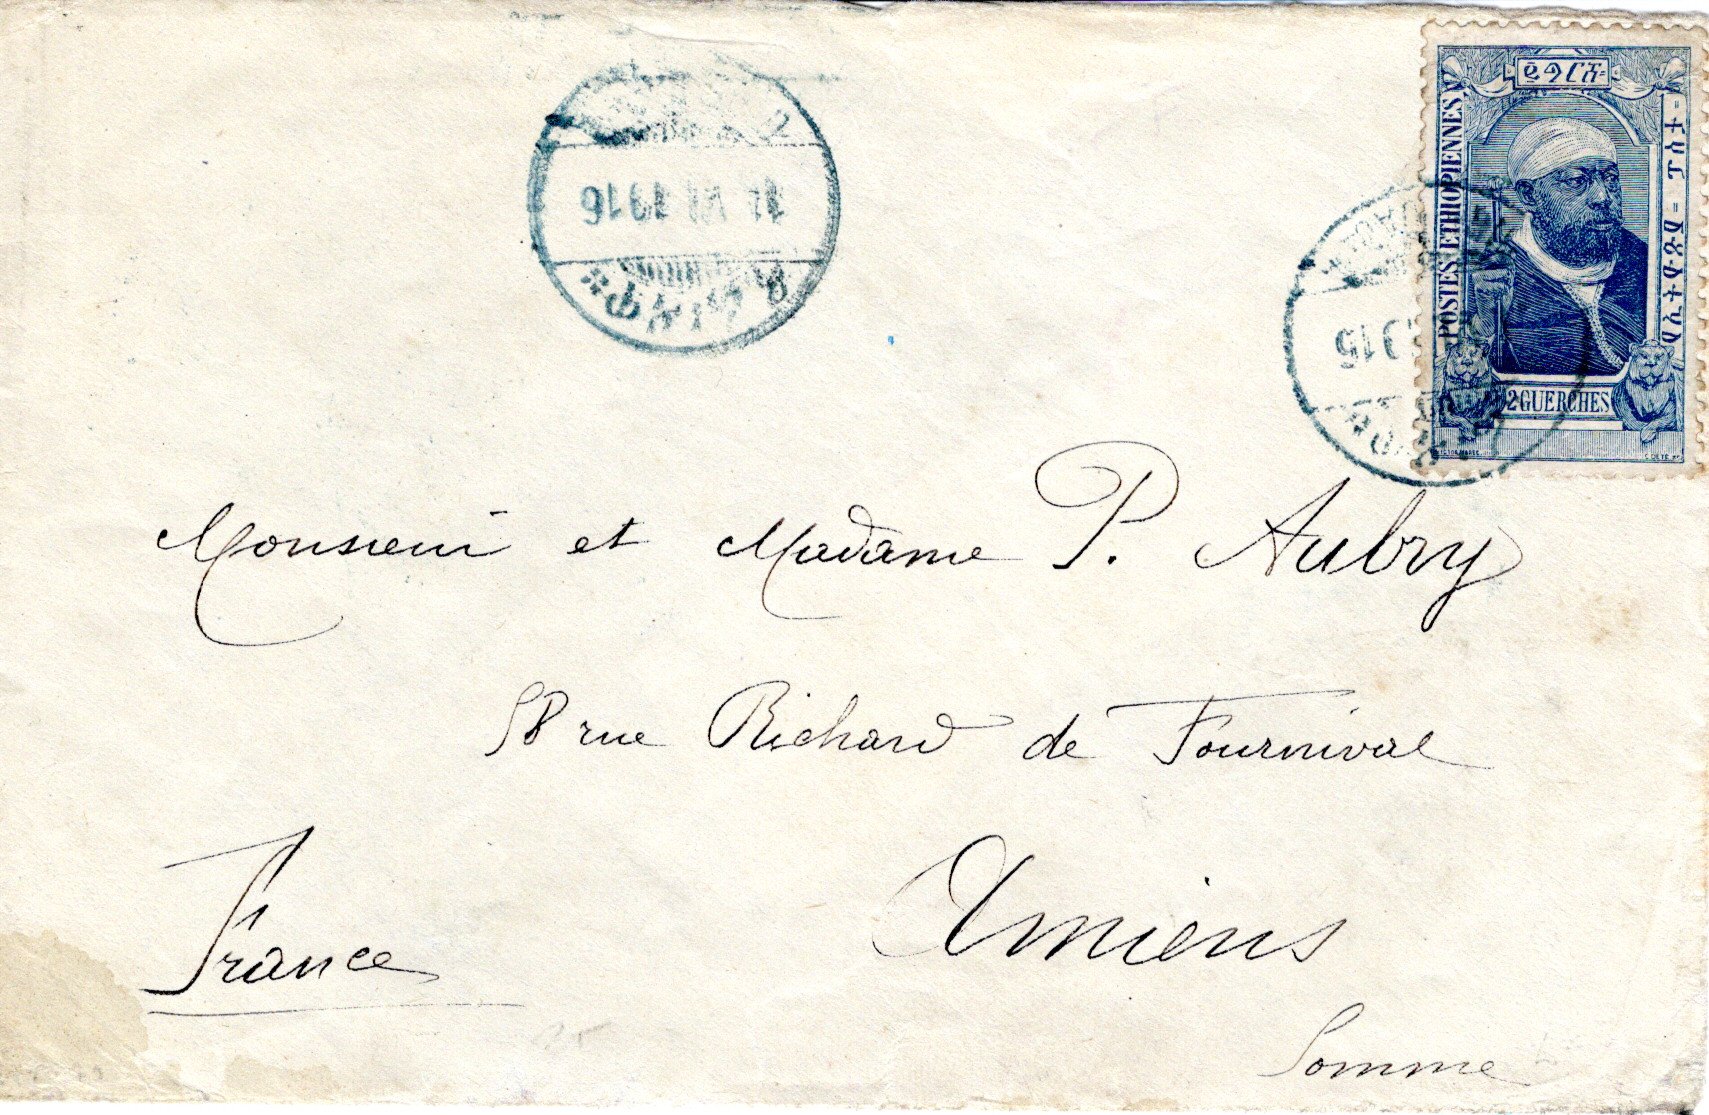 ፪ግርሽ
POSTES ETHIOPIENNES
የኢተዮጵያ = ፖስታ =
2 GUERCHES
1916
Monsieur et Madame P. Aubry
58 rue Richard de Fournival
Amiens
France
Somme